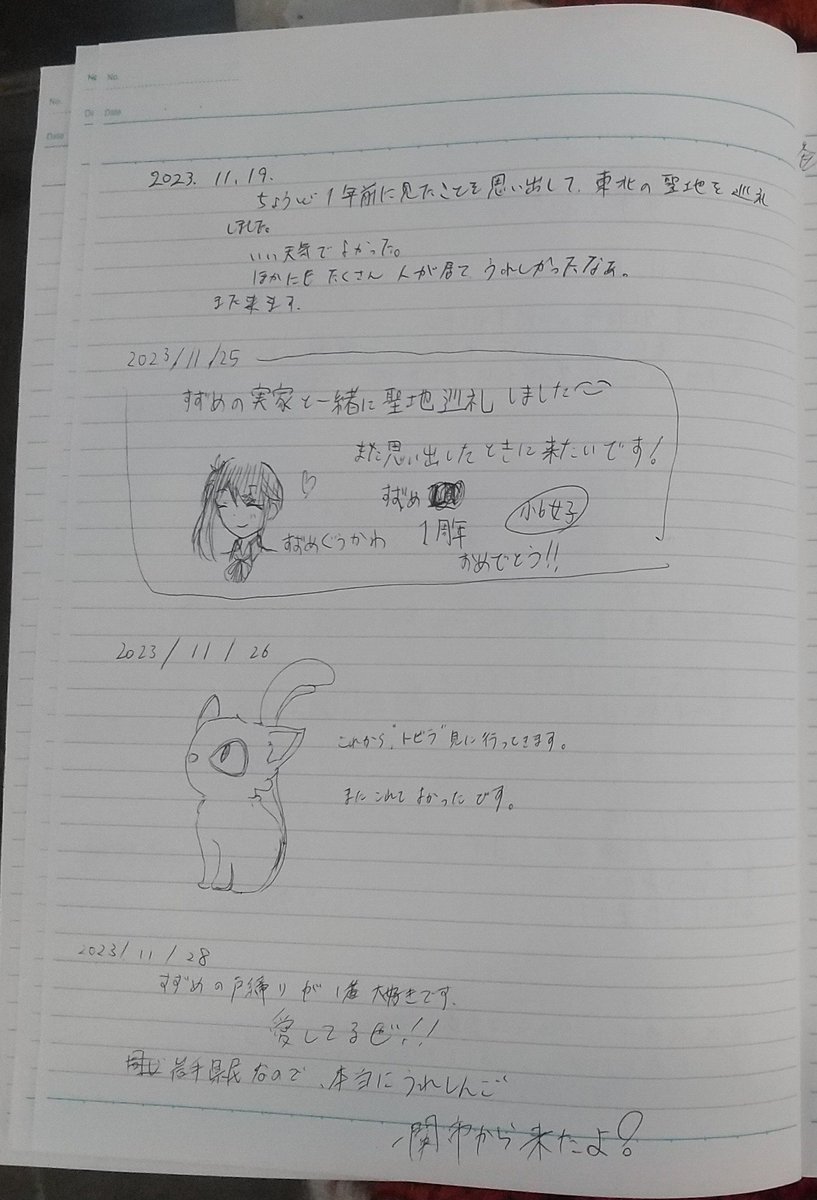 No.
Date
No.
Date
2023. 11. 19.
ちょうど1年前に見たことを思い出して、東北の聖地を巡礼
しました。
いい天気でよかった。
ほかにもたくさん人が居てうれしかったなぁ。
また来ます。
2023/11/25
すずめの実家と一緒に聖地巡礼しました
また思い出したときに来たいです!
すずめ
1周年
おめでとう!!
小6女子
すずめ かわ
2023/11/26
これから"トビラ"見に行ってきます。
またこれてよかったです。
2023/11/28
すずめの戸締りが1番大好きです。
愛してるぜ!!
同じ岩手県民なので、本当にうれしんご
一関市から来たよ!